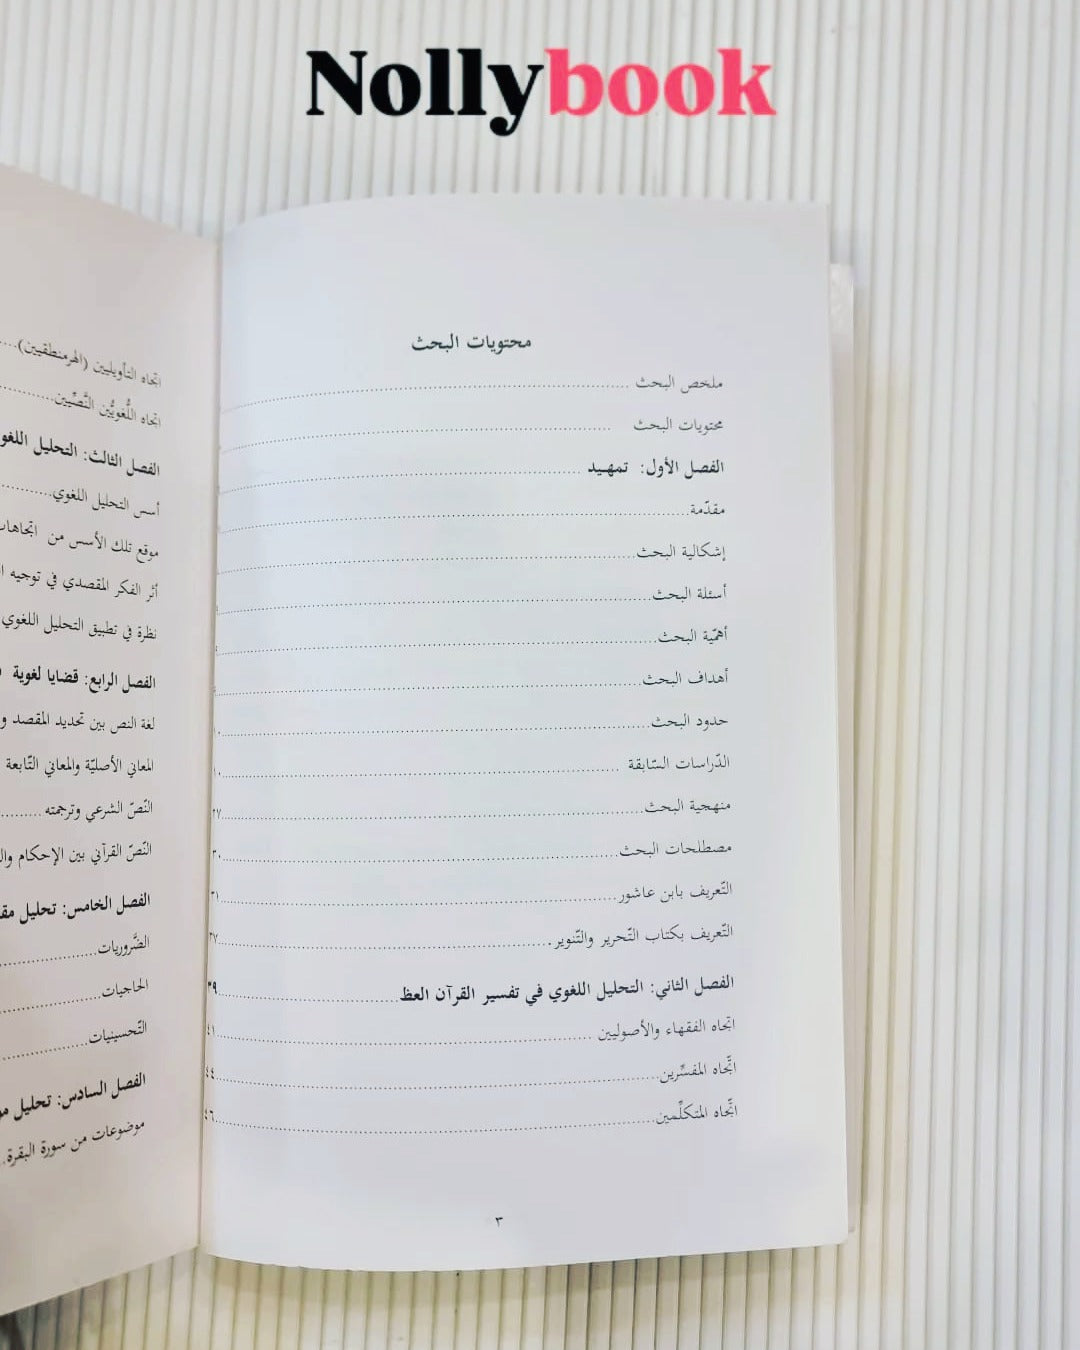 Nollybook
محتويات البحث
ملخص البحث
محتويات البحث
الفصل الأول: تمهيد
مقدّمة
إشكالية البحث
أسئلة البحث
أهمّية البحث
أهداف البحث
حدود البحث ١٠
الدّراسات السّابقة ١٠
منهجية البحث ٢٧
مصطلحات البحث ٣٠
التّعريف بابن عاشور ٣١
التّعريف بكتاب التّحرير والتّنوير ٣٧
الفصل الثاني: التحليل اللغوي في تفسير القرآن العظ ٣٩
اتجاه الفقهاء والأصوليين ٤١
اتّجاه المفسِّرين ٤٤
اتّجاه المتكلِّمين ٤٦
٣
اتجاه التأويليين (الهرمنطقيين)
اتجاه اللُّغويُّين النَّصِّيين
الفصل الثالث: التحليل اللغو
أسس التحليل اللغوي
موقع تلك الأسس من اتجاهات
أثر الفكر المقصدي في توجيه
نظرة في تطبيق التحليل اللغوي
الفصل الرابع: قضايا لغوية
لغة النص بين تحديد المقصد و
المعاني الأصليّة والمعاني التّابعة
النّصّ الشرعي وترجمته
النّصّ القرآني بين الإحكام وال
الفصل الخامس: تحليل مق
الضَّروريات
الحاجيات
التّحسينيات
الفصل السادس: تحليل مو
موضوعات من سورة البقرة